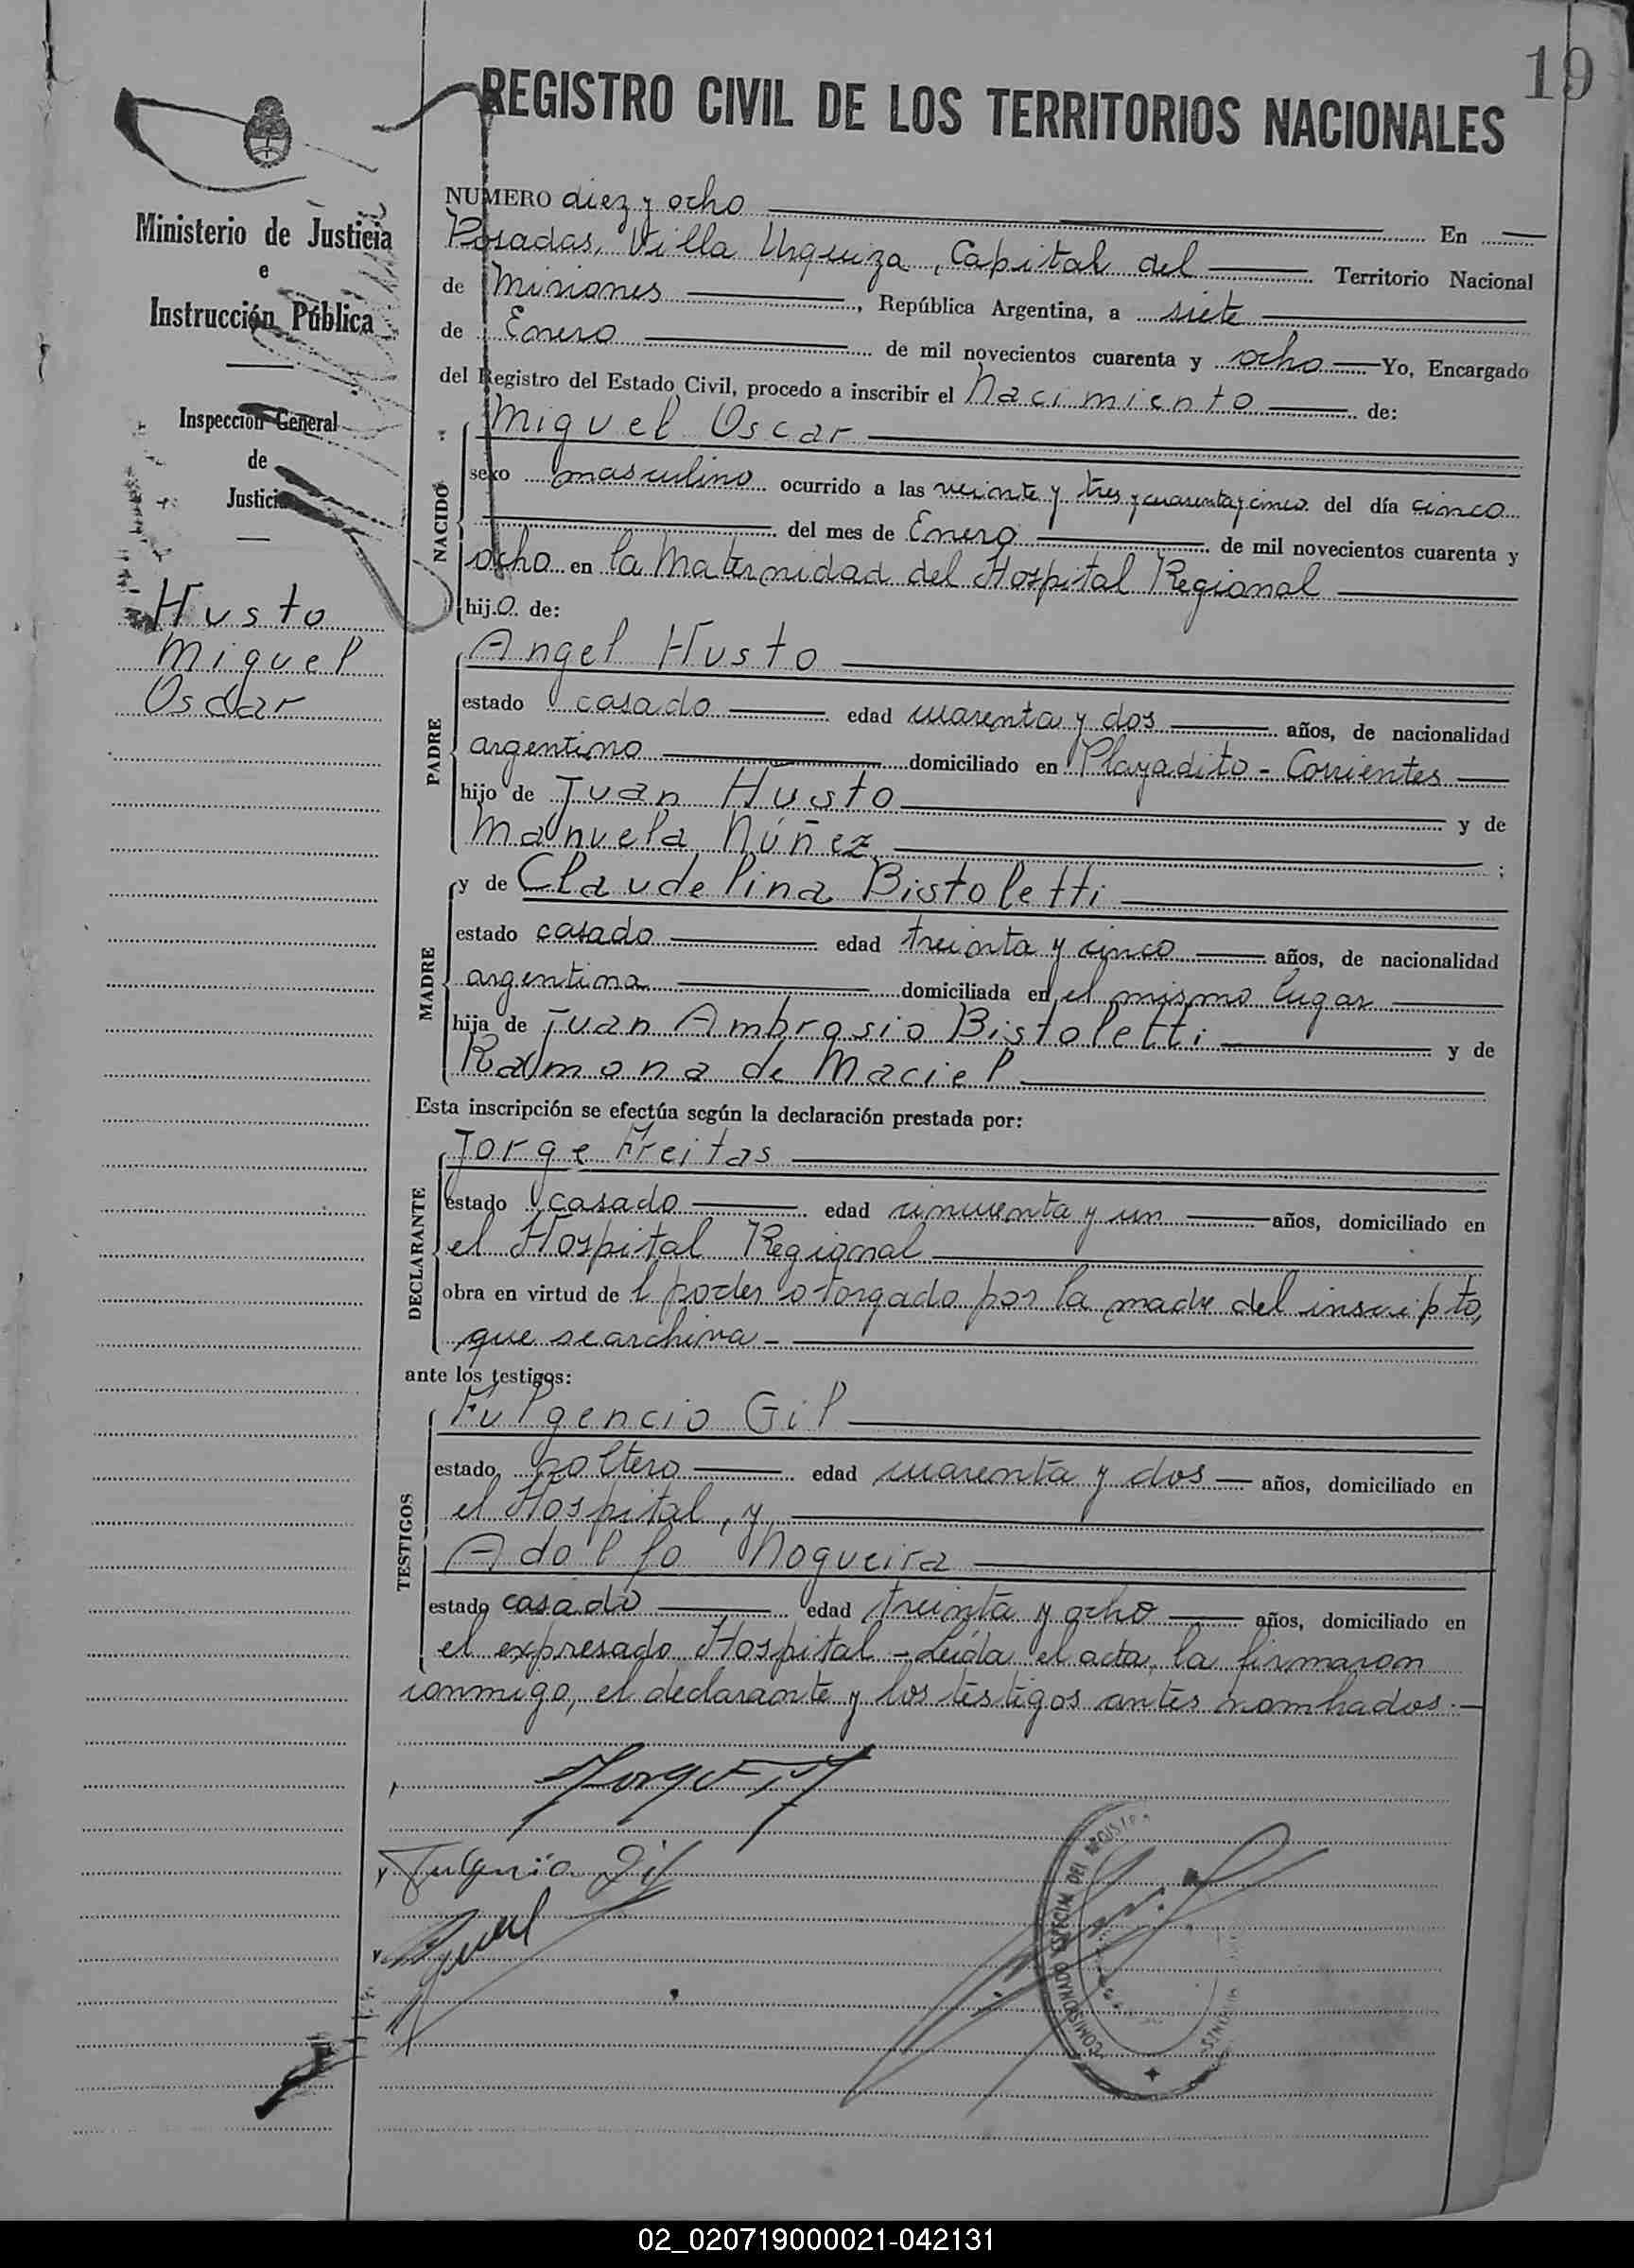 19
REGISTRO CIVIL DE LOS TERRITORIOS NACIONALES
Ministerio de Justicia
e
Instrucción Pública
Inspección General
de
Justicia
Husto
Miguel
Oscar
NUMERO diez y ocho En
Posadas, Villa Urquiza, Capital del Territorio Nacional
de Misiones, República Argentina, a siete
de Enero de mil novecientos cuarenta y ocho Yo, Encargado
del Registro del Estado Civil, procedo a inscribir el Nacimiento de:
NACIDO
Miguel Oscar
sexo masculino ocurrido a las veinte y tres y cuarenta y cinco del día cinco
del mes de Enero de mil novecientos cuarenta y
ocho en la Maternidad del Hospital Regional
hijo de:
PADRE
Angel Husto
estado casado edad cuarenta y dos años, de nacionalidad
argentino domiciliado en Playadito - Corrientes
hijo de Juan Husto y de
Manuela Núñez ;
MADRE
y de Claudelina Bistoletti
estado casado edad treinta y cinco años, de nacionalidad
argentina domiciliada en el mismo lugar
hija de Juan Ambrosio Bistoletti y de
Ramona de Maciel
Esta inscripción se efectúa según la declaración prestada por:
DECLARANTE
Jorge Freitas
estado casado edad cincuenta y un años, domiciliado en
el Hospital Regional
obra en virtud de l poder otorgado por la madre del inscripto,
que se archiva -
ante los testigos:
TESTIGOS
Fulgencio Gil
estado soltero edad cuarenta y dos años, domiciliado en
el Hospital, y
Adolfo Nogueira
estado casado edad treinta y ocho años, domiciliado en
el expresado Hospital - Leída el acta, la firmaron
conmigo, el declarante y los testigos antes nombrados.-
Fulgencio Gil
COMISIONADO ESPECIAL DEL REGISTRO
MISIONES
02_020719000021-042131